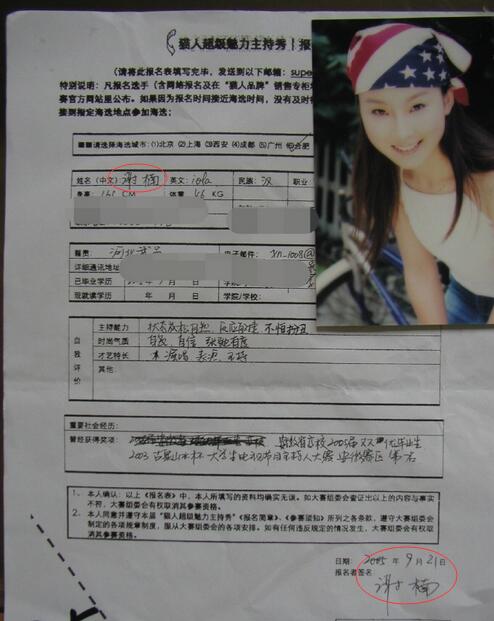 猎人超级魅力主持秀 报
(请将此报名表填写完毕，发送到以下邮箱：supe
特别说明：凡报名选手（含网络报名及在“猎人品牌”销售专柜
赛官方网站里公布。如果因为报名时间接近海选时间，没有及时
接到指定海选地点参加海选；
请选择海选城市：(1)北京 (2)上海 (3)西安 (4)成都 (5)广州 (6)合肥
姓名（中文）谢楠 英文：iola 民族：汉 职业：
身高： CM 体重：46 KG
籍贯：河北 电子邮件：xn_1008@
详细通讯地址
已毕业学历 年 月 日 学院/学校：
现就读学历 年 月 日 学院/学校：
自我评价
主持能力
时尚气质 自然 自信
才艺特长 演唱 表演 主持
其他：
重要社会经历：
曾经获得奖项： 安徽省高校2005届 优毕业生
2003 古井山水杯 大学生电视节目主持人大赛 安徽赛区 第一名
1、本人确认：以上《报名表》中，本人所填写的资料均确实无误。如大赛组委会查证出以上的内容与事实
不符，大赛组委会有权取消其参赛资格。
2、本人同意并遵守本届“猎人超级魅力主持秀”《报名简章》、《参赛须知》所列之各条款，遵守大赛组委会
制定的各项规章制度，服从大赛组委会的各项安排。如有任何违反规定的情况发生，大赛组委会有权取
消其参赛资格。
日期：2005 年 9 月 21 日
报名者签名：
谢楠